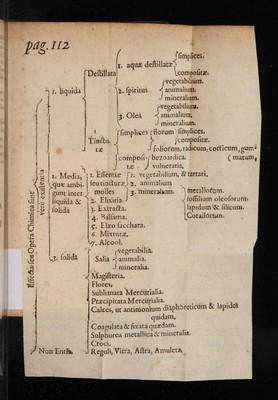 pag. 112
simplices.
1. aquæ destillatæ
compositæ.
Destillata
vegetabilium.
1. liquida
2. spiritus
animalium.
mineralium.
vegetabilium.
3. Olea
animalium.
mineralium.
simplices
florum simplices.
compositæ.
Tinctu
ræ
foliorum, radicum, corticum, gum
(marum,
composi
tæ
bezoardica.
vulneraria.
1. Essentiæ
seu tincturæ
molles
1. vegetabilium, & tartari.
2. animalium
3. mineralium.
metallorum.
fossilium oleosorum
lapidum & silicum.
Corallorum.
2. Media,
quæ ambi-
gunt inter
liquida &
solida
2. Elixiria.
3. Extracta.
4. Balsama.
5. Elæo sacchara.
6. Mixturæ.
7. Alcool.
Effectus seu Opera Chimica sunt
vere existentia
3. solida
Salia
vegetabilia.
animalia.
mineralia.
Magisteria.
Flores.
Sublimata Mercurialia.
Præcipitata Mercurialia.
Calces, ut antimonium diaphoreticum & lapides
quidam.
Coagulata & fixata quædam.
Sulphurea metallica & mineralia.
Croci.
Non Entia.
Reguli, Vitra, Astra, Amuleta.